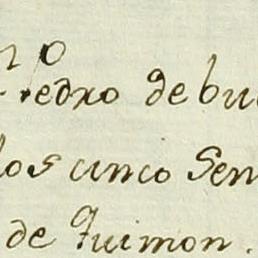 Pedro de bu
los cinco Sen
de Quimon.